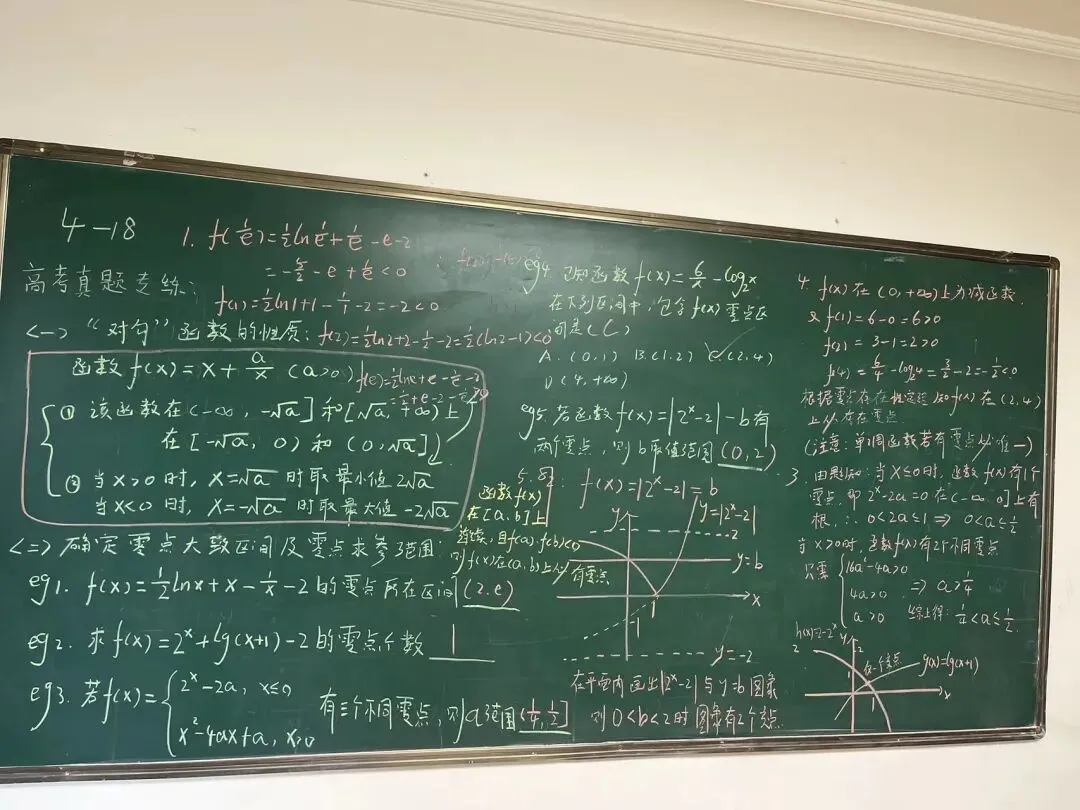 4-18
高考真题专练:
<一> "对勾"函数的性质:
函数 f(x)=x+a/x (a>0)
① 该函数在(-∞, -√a]和[√a, +∞)上↗
在[-√a, 0)和(0,√a]↘
② 当x>0时, x=√a 时取最小值 2√a
当x<0时, x=-√a 时取最大值 -2√a
<二> 确定零点大致区间及零点求参范围:
eg1. f(x)=1/2lnx+x-1/x-2的零点所在区间(2.e)
eg2. 求f(x)=2^x+lg(x+1)-2的零点个数 1
eg3. 若f(x)={2^x-2a, x≤0
x²-4ax+a, x>0
有三个不同零点, 则a范围(1/4, 1/2]
1. f(1/e)=1/2ln1/e+1/e-e-2
=-5/2-e+1/e<0
f(1)=1/2ln1+1-1/1-2=-2<0
f(2)=1/2ln2+2-1/2-2=1/2(ln2-1)<0
f(e)=1/2lne+e-1/e-2
=1/2+e-2-1/e>0
eg4. 已知函数f(x)=6/x-log₂x
在下列区间中, 包含f(x)零点区
间是(C)
A.(0,1) B.(1.2) C.(2,4)
D(4,+∞)
eg5. 若函数f(x)=|2^x-2|-b有
两个零点, 则b取值范围(0,2)
函数f(x)
在[a,b]上
连续, 且f(a)·f(b)<0
则f(x)在(a,b)上必
有零点
5.
f(x)=|2^x-2|=b
y
y=|2^x-2|
2
y=b
x
1
-1
y=-2
在平面内画出|2^x-2|与y=b图象
则0<b<2时图象有2个交点
4. f(x)在(0,+∞)上为减函数.
又f(1)=6-0=6>0
f(2)=3-1=2>0
f(4)=6/4-log₂4=3/2-2=-1/2<0
根据零点存在性定理知f(x)在(2,4)
上必存在零点
(注意: 单调函数若有零点必唯一)
3. 由题知: 当x≤0时, 函数f(x)有1个
零点. 即2^x-2a=0在(-∞,0]上有
根, ∴0<2a≤1⇒0<a≤1/2
当x>0时, 函数f(x)有2个不同零点
只需{16a²-4a>0
4a>0 ⇒a>1/4
a>0 综上得: 1/4<a≤1/2.
h(x)=2-2^x
2.
y
2
有一个交点
g(x)=lg(x+1)
x